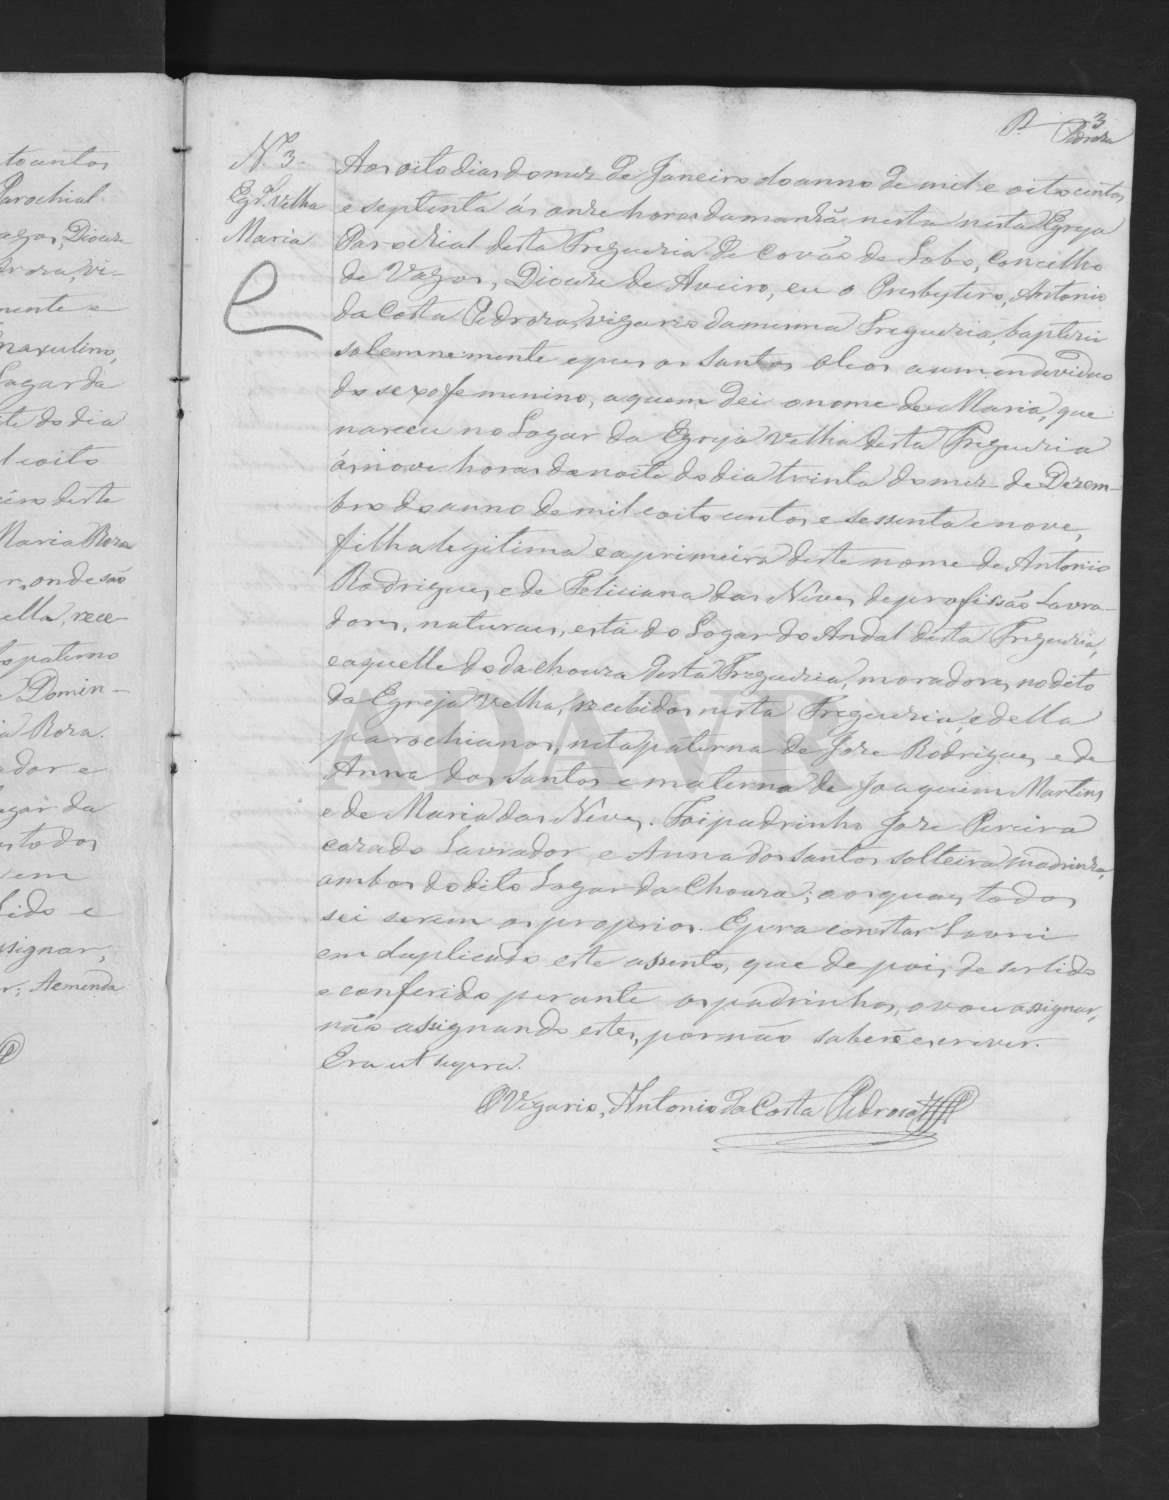 3
Pedroza
Nº 3.
Egrª Velha
Maria
Aos oito dias do mez de Janeiro do anno de mil e oito centos
e septenta ás onze horas da manhã nesta nesta Egreja
Parochial desta Freguezia de Covão de Lobo, Concelho
de Vagos, Dioceze de Aveiro, eu o Presbytero, Antonio
da Costa Pedroza, vigario da mesma Freguezia, baptizei
solemnemente e puz os Santos Oleos a um individuo
do sexo femenino, a quem dei o nome de Maria, que
nasceu no Logar da Egreja Velha desta Freguezia
ás nove horas da noite do dia trinta do mez de Dezem-
bro do anno de mil e oito centos e sessenta e nove,
filha legitima e a primeira deste nome de Antonio
Rodrigues e de Feliciana das Neves, de profissão Lavra-
dores, naturaes, esta do Logar do Andal desta Freguezia,
e aquelle do da Chouza desta Freguezia, moradores no dito
da Egreja Velha, recebidos nesta Freguezia, e della
parochianos, neta paterna de Joze Rodrigues e de
Anna dos Santos e materna de Joaquim Martins
e de Maria das Neves. Foi padrinho Joze Pereira
cazado Lavrador e Anna dos Santos solteira madrinha,
ambos do dito Logar da Chouza; os quaes todos
sei serem os proprios. E para constar Lavrei
em duplicado este assento, que depois de ser lido
e conferido perante os padrinhos, o vou assignar,
não assignando estes, por não saberẽ escrever.
Era ut supra.
O Vigario, Antonio da Costa Pedroza
ADAVR
to centos
Parochial
agos, Dioceze
droza, vi-
mente e
masculino,
Logar da
ite do dia
l e oito
deste
Maria Roza
r, onde são
ella, rece-
to paterno
e Domin-
a Roza.
ador e
ogar da
s todos
em
lido e
ssignar,
r; A emenda